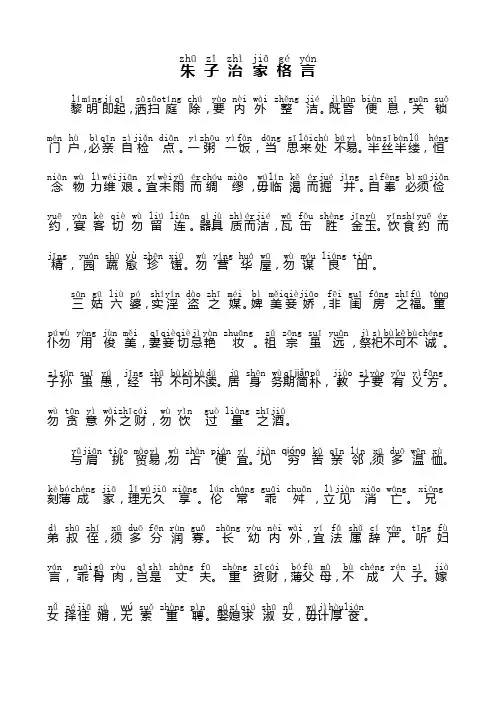 zhū zǐ zhì jiā gé yán
朱子治家格言
lí míng jí qǐ sǎ sǎo tíng chú yào nèi wài zhěng jié jì hūn biàn xī guān suǒ
黎明即起,洒扫庭除,要内外整洁。既昏便息,关锁
mén hù bì qīn zì jiǎn diǎn yì zhōu yí fàn dāng sī lái chù bú yì bàn sī bàn lǚ héng
门户,必亲自检点。一粥一饭,当思来处不易。半丝半缕,恒
niàn wù lì wéi jiān yí wèi yǔ ér chóu móu wú lín kě ér jué jǐng zì fèng bì xū jiǎn
念物力维艰。宜未雨而绸缪,毋临渴而掘井。自奉必须俭
yuē yàn kè qiè wù liú lián qì jù zhì ér jié wǎ fǒu shèng jīn yù yǐn shí yuē ér
约,宴客切勿留连。器具质而洁,瓦缶胜金玉。饮食约而
jīng yuán shū yù zhēn xiū wù yíng huá wū wù móu liáng tián
精,园蔬愈珍馐。勿营华屋,勿谋良田。
sān gū liù pó shí yín dào zhī méi bì měi qiè jiāo fēi guī fáng zhī fú tóng
三姑六婆,实淫盗之媒。婢美妾娇,非闺房之福。童
pú wù yòng jùn měi qī qiè qiè jì yàn zhuāng zǔ zōng suī yuǎn jì sì bù kě bù chéng
仆勿用俊美,妻妾切忌艳妆。祖宗虽远,祭祀不可不诚。
zǐ sūn suī yú jīng shū bù kě bù dú jū shēn wù qī jiǎn pǔ jiào zǐ yào yǒu yì fāng
子孙虽愚,经书不可不读。居身务期简朴,教子要有义方。
wù tān yì wài zhī cái wù yǐn guò liàng zhī jiǔ
勿贪意外之财,勿饮过量之酒。
yǔ jiān tiāo mào yì wù zhàn pián yí jiàn qióng kǔ qīn lín xū duō wēn xù
与肩挑贸易,勿占便宜。见穷苦亲邻,须多温恤。
kè bó chéng jiā lǐ wú jiǔ xiǎng lún cháng guāi chuǎn lì jiàn xiāo wáng xiōng
刻薄成家,理无久享。伦常乖舛,立见消亡。兄
dì shū zhí xū duō fēn rùn guǎ zhǎng yòu nèi wài yí fǎ shǔ cí yán tīng fù
弟叔侄,须多分润寡。长幼内外,宜法属辞严。听妇
yán guāi gǔ ròu qǐ shì zhàng fū zhòng zī cái bó fù mǔ bù chéng rén zǐ jià
言,乖骨肉,岂是丈夫。重资财,薄父母,不成人子。嫁
nǚ zé jiā xù wú suǒ zhòng pìn qǔ xí qiú shū nǚ wú jì hòu lián
女择佳婿,无索重聘。娶媳求淑女,毋计厚奁。